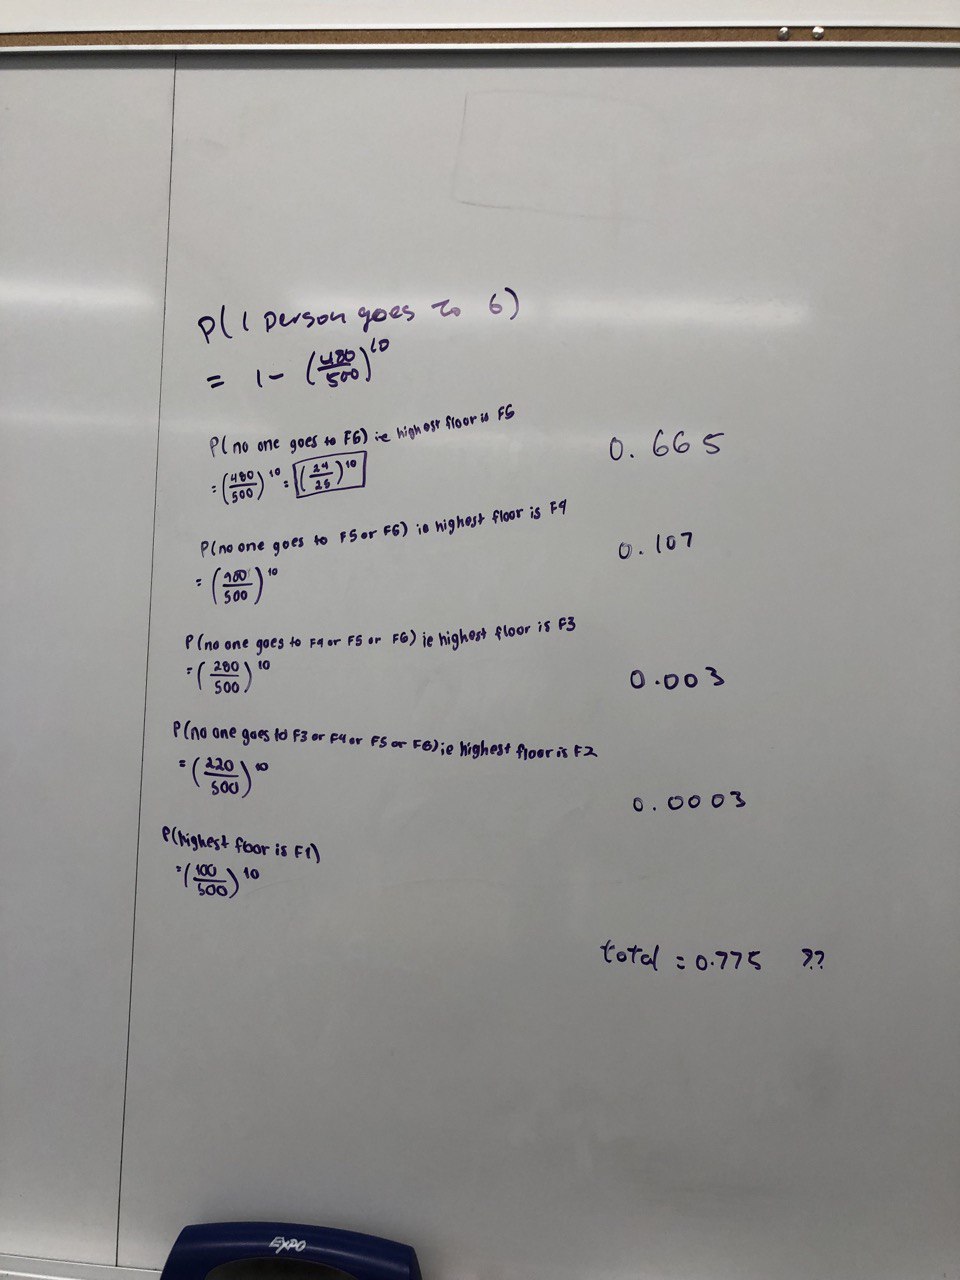 P(1 person goes to 6)
= 1 - (480/500)^10
P(no one goes to F6) ie highest floor is F5
= (480/500)^10 = (24/25)^10
0.665
P(no one goes to F5 or F6) ie highest floor is F4
= (400/500)^10
0.107
P(no one goes to F4 or F5 or F6) ie highest floor is F3
= (280/500)^10
0.003
P(no one goes to F3 or F4 or F5 or F6) ie highest floor is F2
= (220/500)^10
0.0003
P(highest floor is F1)
= (100/500)^10
total = 0.775 ??
EXPO